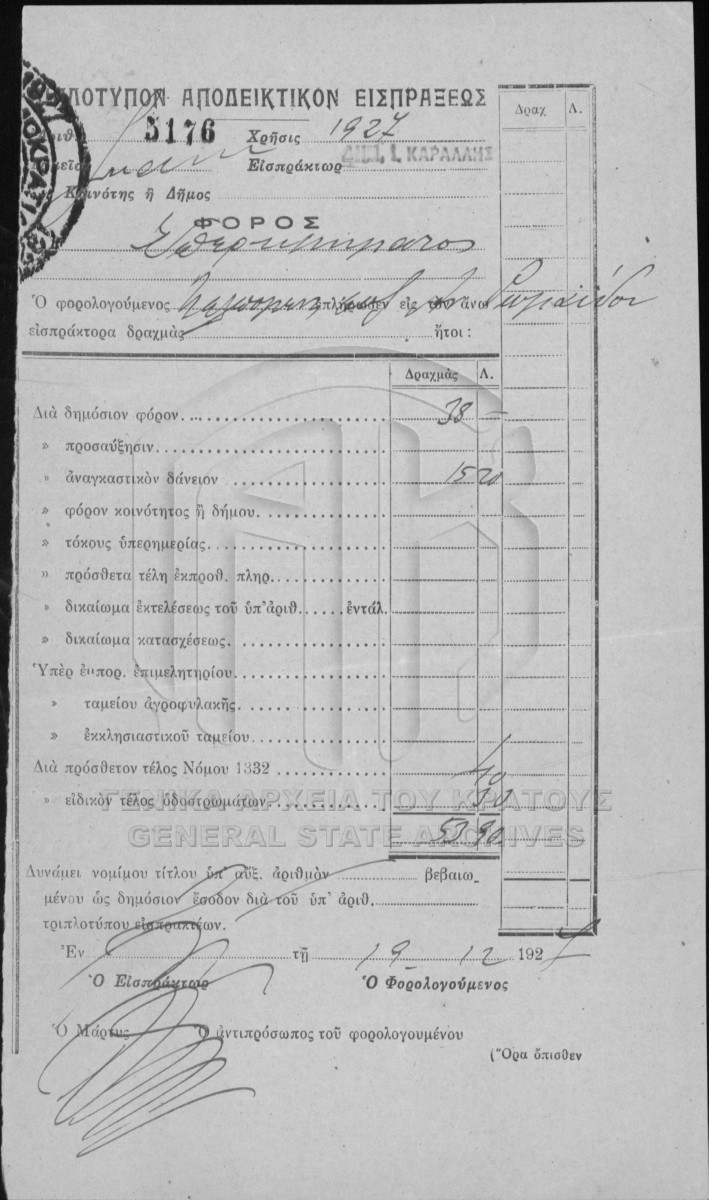 ΛΟΤΥΠΟΝ ΑΠΟΔΕΙΚΤΙΚΟΝ ΕΙΣΠΡΑΞΕΩΣ
ριθ. 5176 Χρῆσις 1927
Εἰσπράκτωρ ΔΗΜ. Ι. ΚΑΡΑΛΛΗΣ
Κοινότης ἢ Δῆμος
ΦΟΡΟΣ
Ὁ φορολογούμενος ἐπλήρωσεν εἰς τὸν ἄνω
εἰσπράκτορα δραχμὰς ἤτοι :
Δραχ. Λ.
Δραχμὰς Λ.
Διὰ δημόσιον φόρον 38 —
» προσαύξησιν
» ἀναγκαστικὸν δάνειον 15 20
» φόρον κοινότητος ἢ δήμου
» τόκους ὑπερημερίας
» πρόσθετα τέλη ἐκπροθ. πληρ.
» δικαίωμα ἐκτελέσεως τοῦ ὑπ' ἀριθ. ἐντάλ.
» δικαίωμα κατασχέσεως
Ὑπὲρ ἐμπορ. ἐπιμελητηρίου
» ταμείου ἀγροφυλακῆς
» ἐκκλησιαστικοῦ ταμείου
Διὰ πρόσθετον τέλος Νόμου 1332 40
» εἰδικὸν τέλος ὁδοστρωμάτων 30
ΓΕΝΙΚΑ ΑΡΧΕΙΑ ΤΟΥ ΚΡΑΤΟΥΣ
GENERAL STATE ARCHIVES
53 90
Δυνάμει νομίμου τίτλου ὑπ' αὔξ. ἀριθμὸν βεβαιω_
μένου ὡς δημόσιον ἔσοδον διὰ τοῦ ὑπ' ἀριθ.
τριπλοτύπου εἰσπρακτέων.
Ἐν τῇ 19 12 1927
Ὁ Εἰσπράκτωρ Ὁ Φορολογούμενος
Ὁ Μάρτυς Ὁ ἀντιπρόσωπος τοῦ φορολογουμένου
(Ὅρα ὄπισθεν